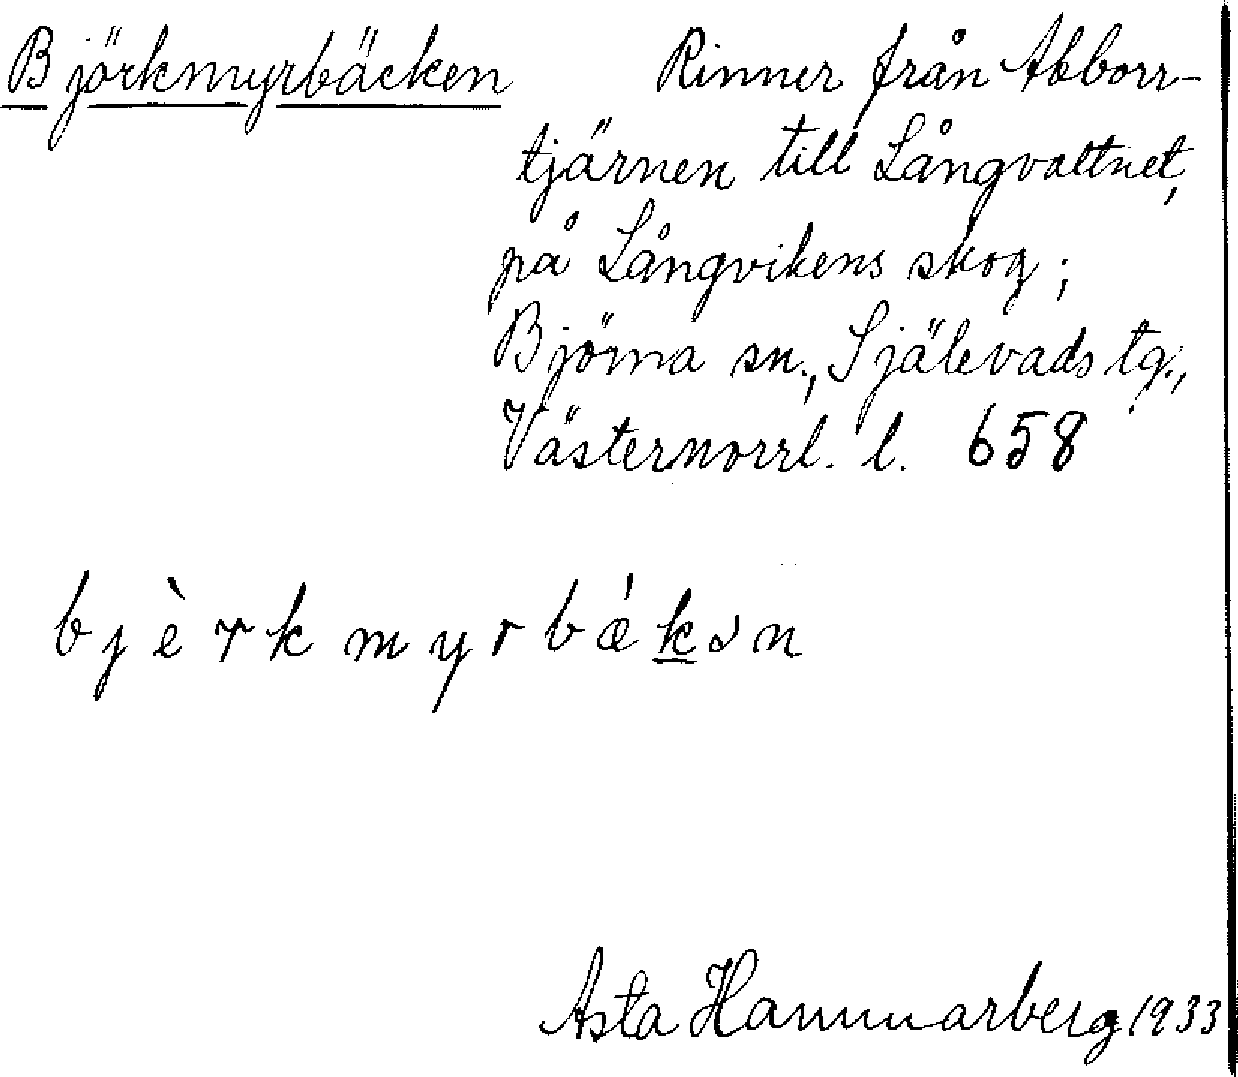 Björkmyrbäcken Rinner från Abborr-
tjärnen till Långvattnet,
på Långvikens skog;
Björna sn., Själevads tg.,
Västernorrl. l. 658
bjèrkmyrbǽkən
Asta Hammarberg 1933